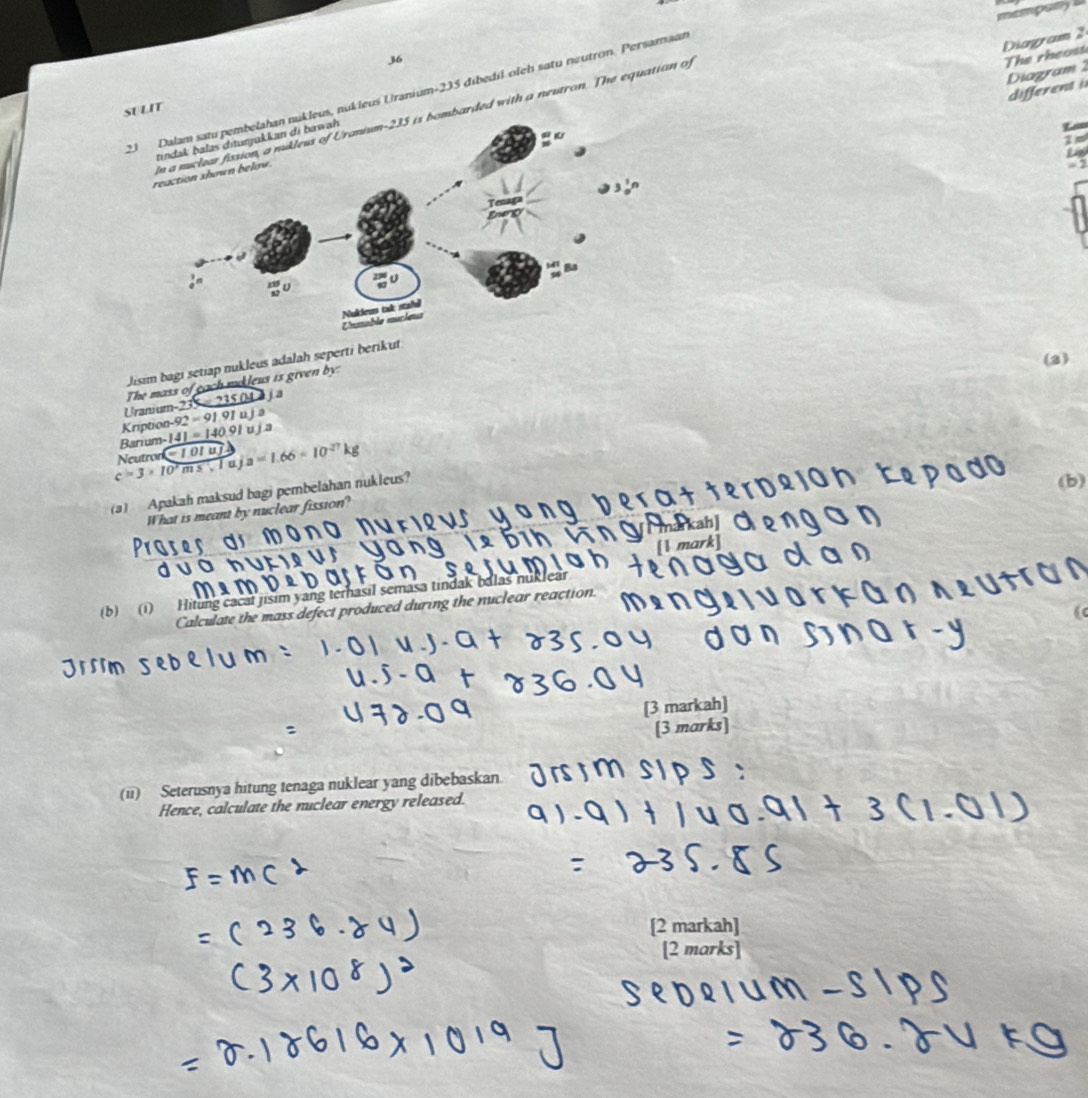 36
SULIT
23 Dalam satu pembelahan nukleus, nukleus Uranium-235 dibedil oleh satu neutron. Persamaan
tindak balas ditunjukkan di bawah
In a nuclear fission, a nukleus of Uranium-235 is bombarded with a neutron. The equation of
reaction shown below.
92 36 Kr
Tenaga
Energy
3 1 0 n
1 0 n
235 92 U
236 92 U
141 56 Ba
Nukleus tak stabil
Unstable nucleus
Jisim bagi setiap nukleus adalah seperti berikut.
The mass of each nukleus is given by:
Uranium-235 = 235.04 u.j.a
Kripton-92 = 91.91 u.j.a
Barium-141 = 140.91 u.j.a
Neutron = 1.01 u.j.a
c = 3 × 10⁸ m s⁻¹, 1 u.j.a = 1.66 × 10⁻²⁷ kg
(a) Apakah maksud bagi pembelahan nukleus?
What is meant by nuclear fission?
Proses di mana nukleus yang berat terbelah kepada
dua nukleus yang lebih ringan dengan
[1 markah]
[1 mark]
membebaskan sejumlah tenaga dan
mengeluarkan neutron
dan sinar-y
(b) (i) Hitung cacat jisim yang terhasil semasa tindak balas nuklear
Calculate the mass defect produced during the nuclear reaction.
Jisim sebelum = 1.01 u.j.a + 235.04
u.j.a + 236.04
= 472.09
[3 markah]
[3 marks]
(ii) Seterusnya hitung tenaga nuklear yang dibebaskan.
Hence, calculate the nuclear energy released.
Jisim slps :
91.91 + 140.91 + 3(1.01)
= 235.85
E = mc²
= (236.24)
(3×10⁸)²
= 2.12616 × 10¹⁹ J
[2 markah]
[2 marks]
sebelum - slps
= 236.24 kg
Diagram 2
The rheost
Diagram 2
different i
(a)
(b)
(c